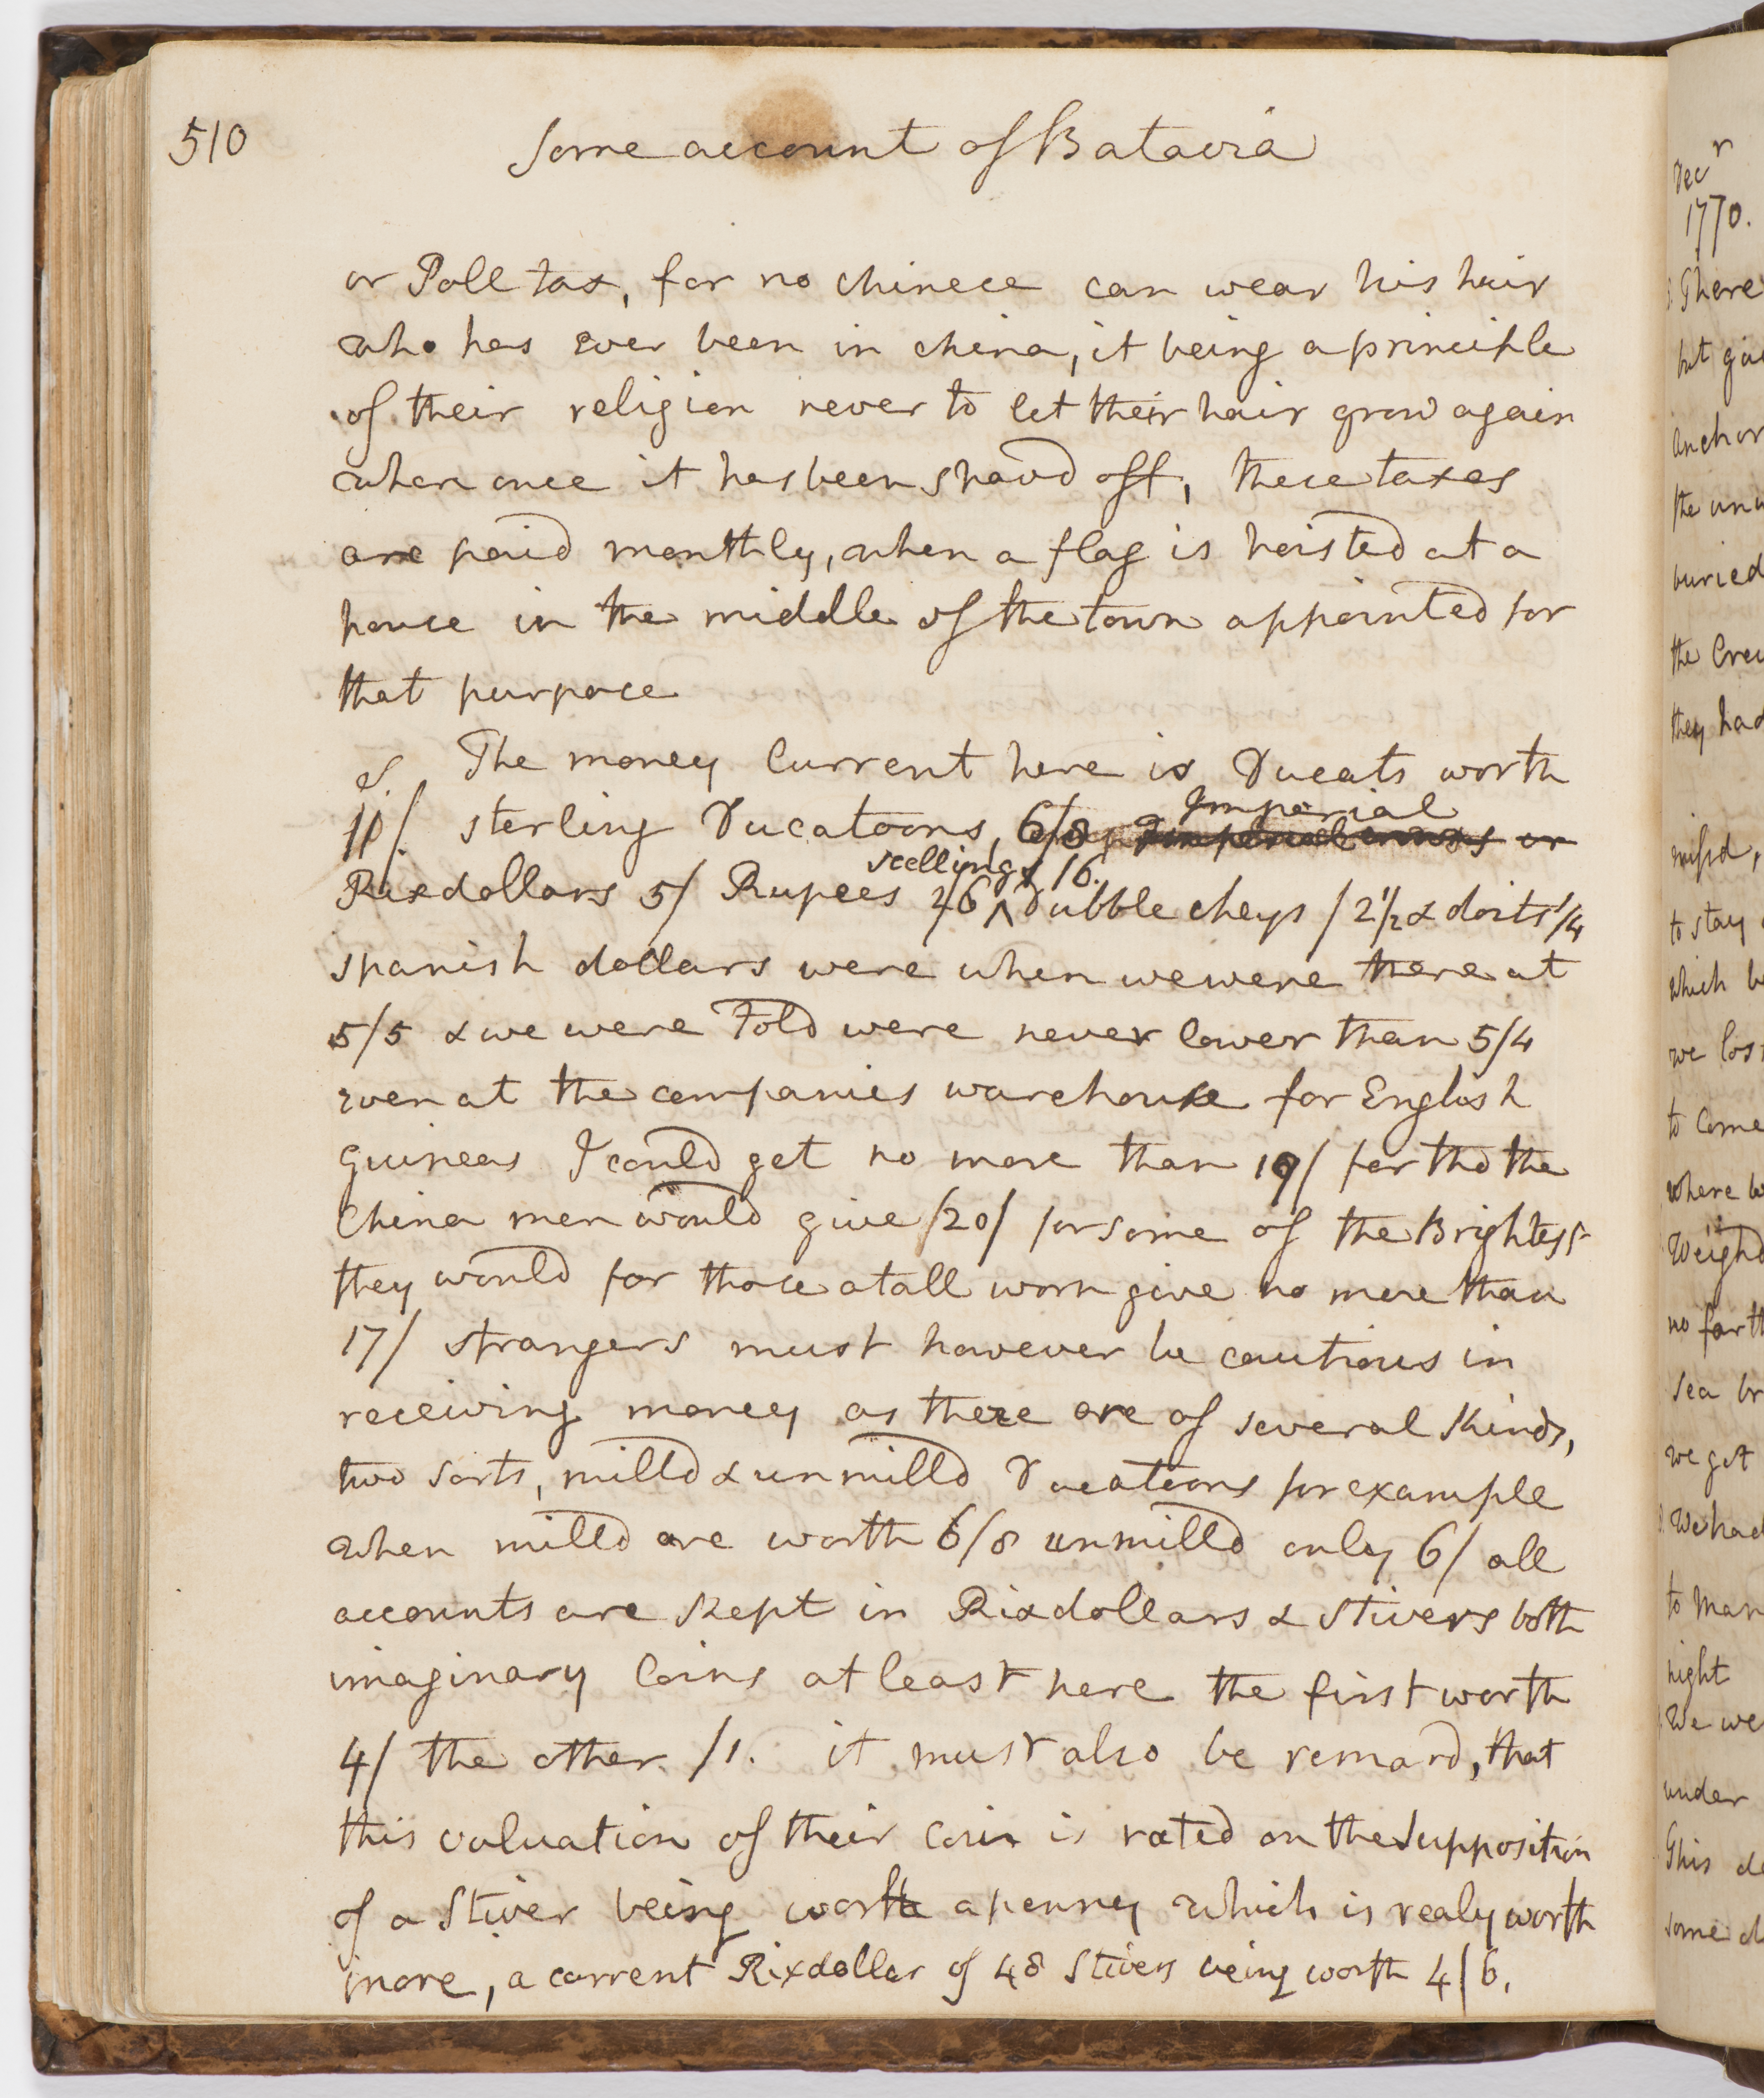 510
Some account of Batavia
or Poll tax, for no chinece can wear his hair
who has ever been in china, it being a principle
of their religion never to let their hair grow again
when once it has been shavd off, these taxes
are paid monthly, when a flag is hoisted at a
house in the middle of the town appointed for
that purpose
&. The money Current here is Ducats worth
11/ sterling Ducatoons, 6/8 Imperial
Rixdollars 5/ Rupees 2/6 scellings /6. Dubble cheys /2½ & doits ¼
spanish dollars were when we were there at
5/5 & we were told were never lower than 5/4
even at the companies warehouse for English
Guineas I could get no more than 19/ for tho the
China men would give /20/ for some of the Brightest
they would for those at all worn give no more than
17/ strangers must however be cautious in
receiving money as there are of several kinds,
two sorts, milld & unmilld Ducatoons for example
when milld are worth 6/8 unmilld only 6/ all
accounts are kept in Rixdollars & stivers both
imaginary Coins at least here the first worth
4/ the other /1. it must also be remard, that
this valuation of their coin is rated on the supposition
of a Stiver being worth a penney which is realy worth
more, a current Rixdollar of 48 Stivers being worth 4/6.
Decr
1770.
There
anchor
buried
the Crew
they had
missd,
to stay
which
to come
where
Weighd
no
sea
we got
We had
to
night
We we
under
This
some